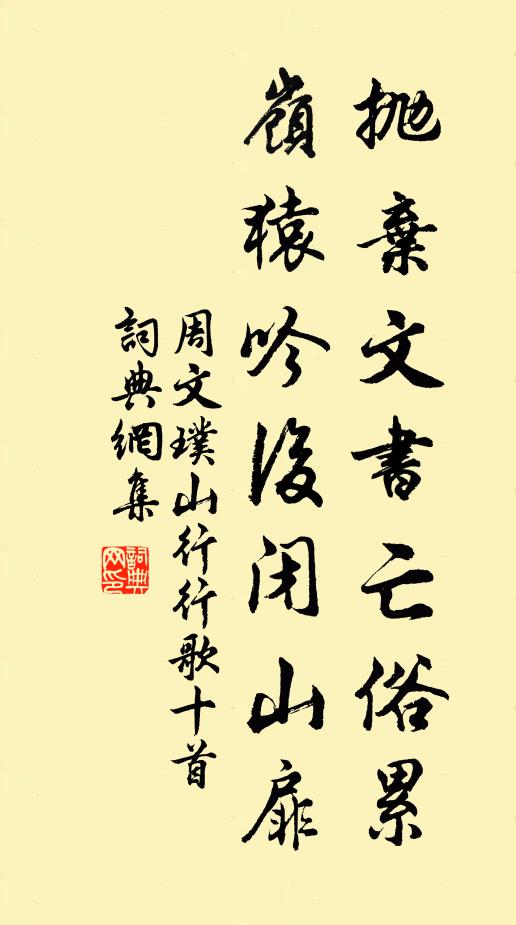 抛棄文書亡俗累
嶺猿吟後閉山扉
周文璞山行行歌十首
詞典網集
詞典网印